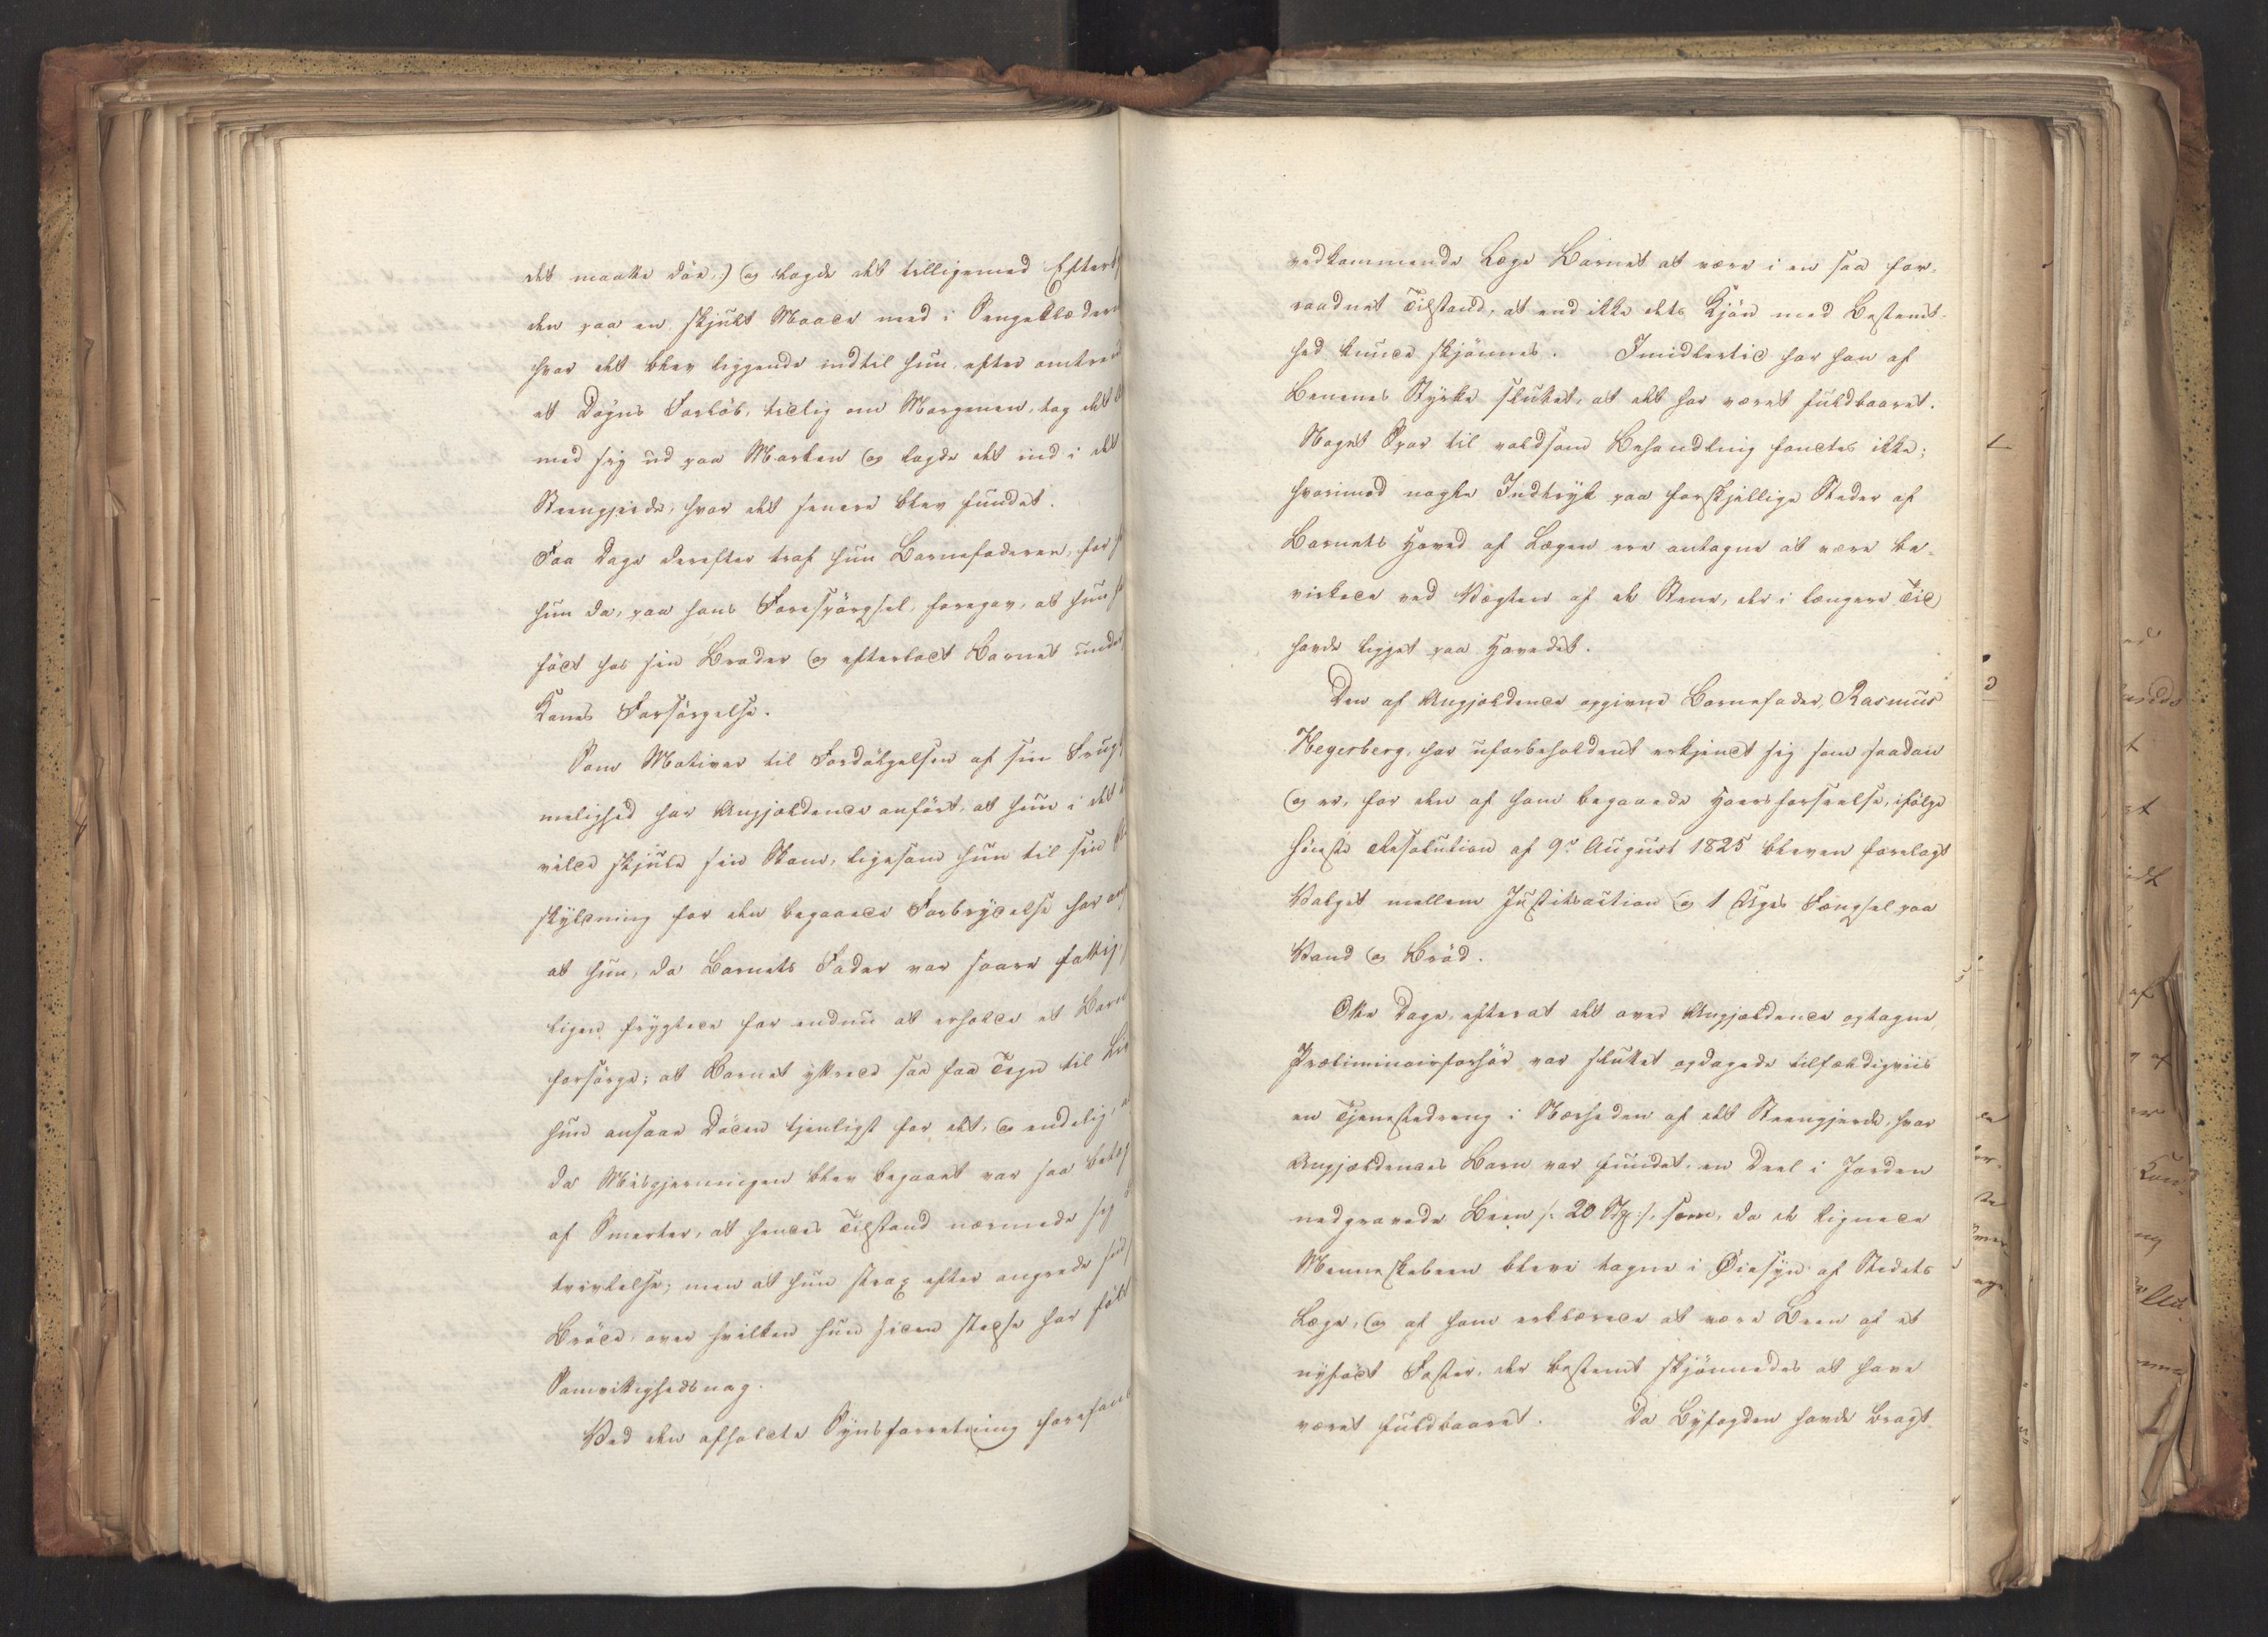 det maatte döe,) og lagde det tilligemed Efterb
den paa en skjult Maade med i Sengeklæderne
hvor det blev liggende indtil hun, efter omtrent
et Dögns Forløb, tidlig om Morgenen, tog det
med sig ud paa Marken og lagde det ind i det
Steengjerde, hvor det senere blev fundet.
Faa Dage derefter traf hun Barnefaderen, for
hun da, paa hans Forespörgsel, foregav, at hun
födt hos sin Broder og efterladt Barnet under
Kones Forsörgelse.
Som Motiver til Fordölgelsen af sin Frugt
melighed har Angjældende anfört, at hun i det
vilde skjule sin Skam, ligesom hun til sin
skyldning for den begaaede Forbrydelse har an
at hun, da Barnets Fader var saare fattig,
ligen frygtede for endnu at erholde et Barn
forsörge; at Barnet yttrede saa faa Tegn til Liv
hun ansaae Döden tjenligst for det, og endelig,
da Misgjerningen blev begaaet var saa betag
af Smerter, at hendes Tilstand nærmede sig
tvivlelse; men at hun strax efter angrede sin
Bröde, over hvilken hun siden stedse har fölt
Samvittighedsnag.
Ved den afholdte Synsforretning forefandt
vedkommende Læge Barnet at være i en saa for-
raadnet Tilstand, at end ikke dets Kjön med Bestemt-
hed kunde skjönnes. Imidlertid har han af
Benenes Styrke sluttet, at det har været fuldbaaret.
Noget Spor til voldsom Behandling fandtes ikke;
hvorimod nogle Indtryk paa forskjellige Steder af
Barnets Hoved af Lægen ere antagne at være be-
virkede ved Vægten af de Stene, der i længere Tid
havde ligget paa Hovedet.
Den af Angjældende opgivne Barnefader, Rasmus
Hegerberg, har uforbeholdent erkjendt sig som saadan
og er, for den af ham begaaede Hoersforseelse, ifölge
höieste Resolution af 9de August 1825 bleven forelagt
Valget mellem Justitsaction og 1 Uges Fængsel paa
Vand og Bröd.
Otte Dage, efterat det over Angjældende optagne
Præliminairforhör var sluttet opdagede tilfældigviis
en Tjenestedreng i Nærheden af det Steengjerde, hvor
Angjældendes Barn var fundet, en Deel i Jorden
nedgravede Been /: 20 Stk :/, som, da de lignede
Menneskebeen bleve tagne i Øiesyn af Stedets
Læge, og af ham erklærede at være Been af et
nyfödt Foster, der bestemt skjönnedes at have
været fuldbaaret. Da Byfogden havde bragt